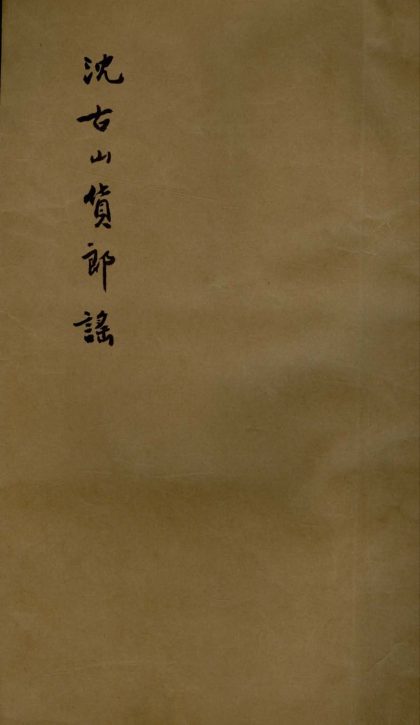 沈古山貨郎謠